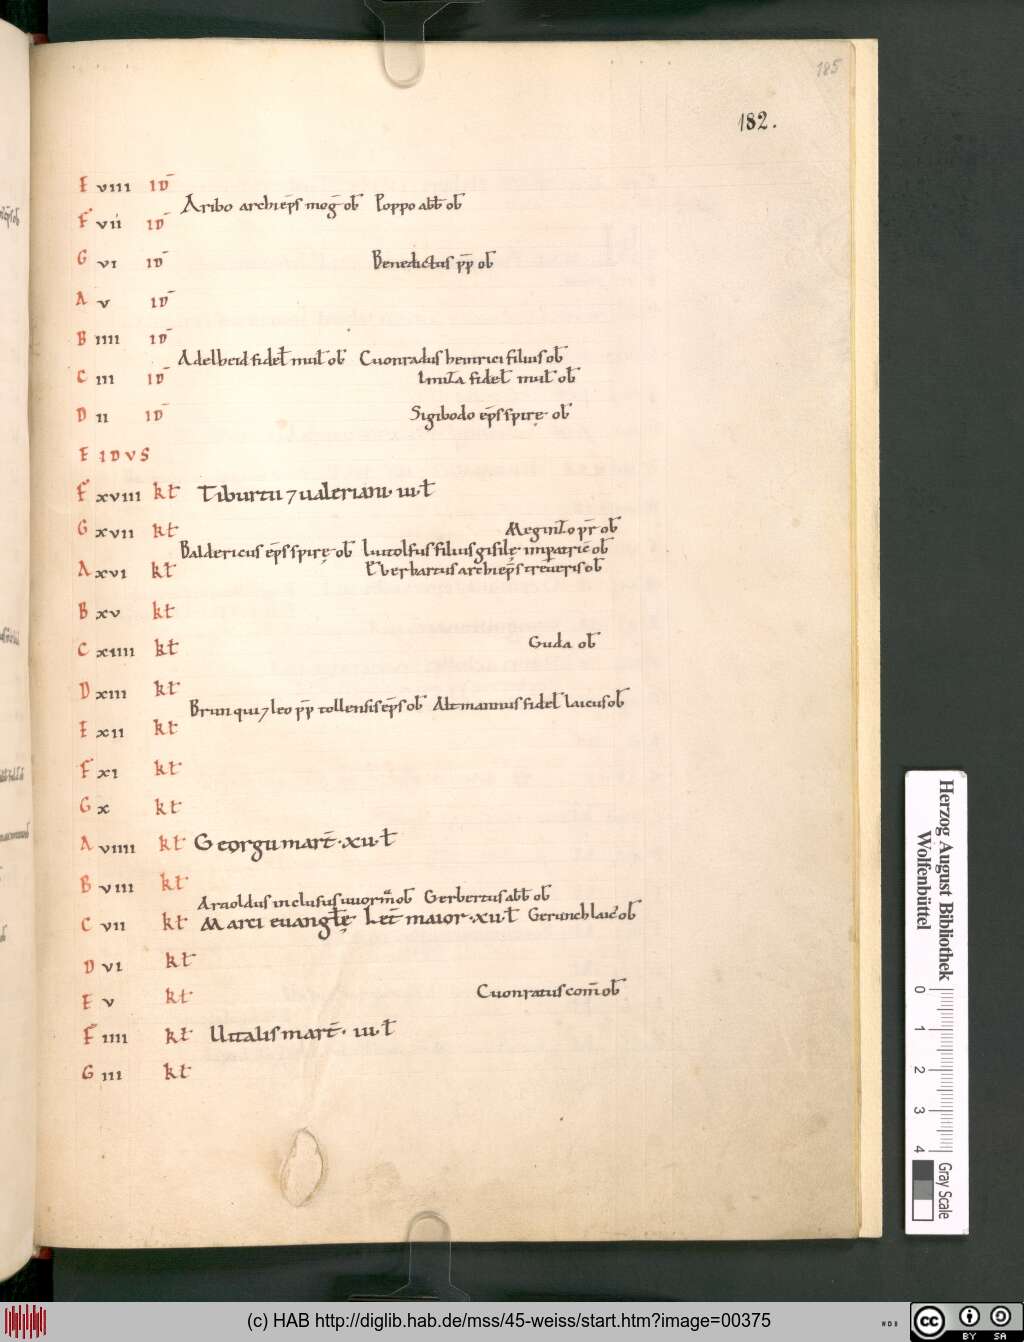 185
182.
E viii id̄
Aribo archiep̄s moḡ ob̄ Poppo abb̄ ob̄
F vii id̄
G vi id̄ Benedictus pp̄ ob̄
A v id̄
B iiii id̄
Adelheid fidel̄ mul̄ ob̄ Cuonradus heinrici filius ob̄
C iii id̄ Imiza fidel̄ mul̄ ob̄
D ii id̄ Sigibodo ep̄s spirę ob̄
E IDVS
F xviii kł Tiburtii ⁊ ualeriani · iii · ł
G xvii kł Meginzo pr̄ ob̄
Baldericus ep̄s spirę ob̄ Liutolfus filius gisilę imperatric̄ ob̄
A xvi kł Eberhartus archiep̄s treueris ob̄
B xv kł
C xiiii kł Guda ob̄
D xiii kł
Brun qui ⁊ leo pp̄ tollensis ep̄s ob̄ Altmannus fidel̄ laicus ob̄
E xii kł
F xi kł
G x kł
A viiii kł Georgii mart̄ · xii · ł
B viii kł
Arnoldus inclusus uuorm̄ ob̄ Gerbertus abb̄ ob̄
C vii kł Marci euangłę Let̄ maior · xii · ł Geruuch laic̄ ob̄
D vi kł
E v kł Cuonratus com̄ ob̄
F iiii kł Uitalis mart̄ · iii · ł
G iii kł
Herzog August Bibliothek
Wolfenbüttel
0 1 2 3 4
Gray Scale
(c) HAB http://diglib.hab.de/mss/45-weiss/start.htm?image=00375
WDB
cc BY SA